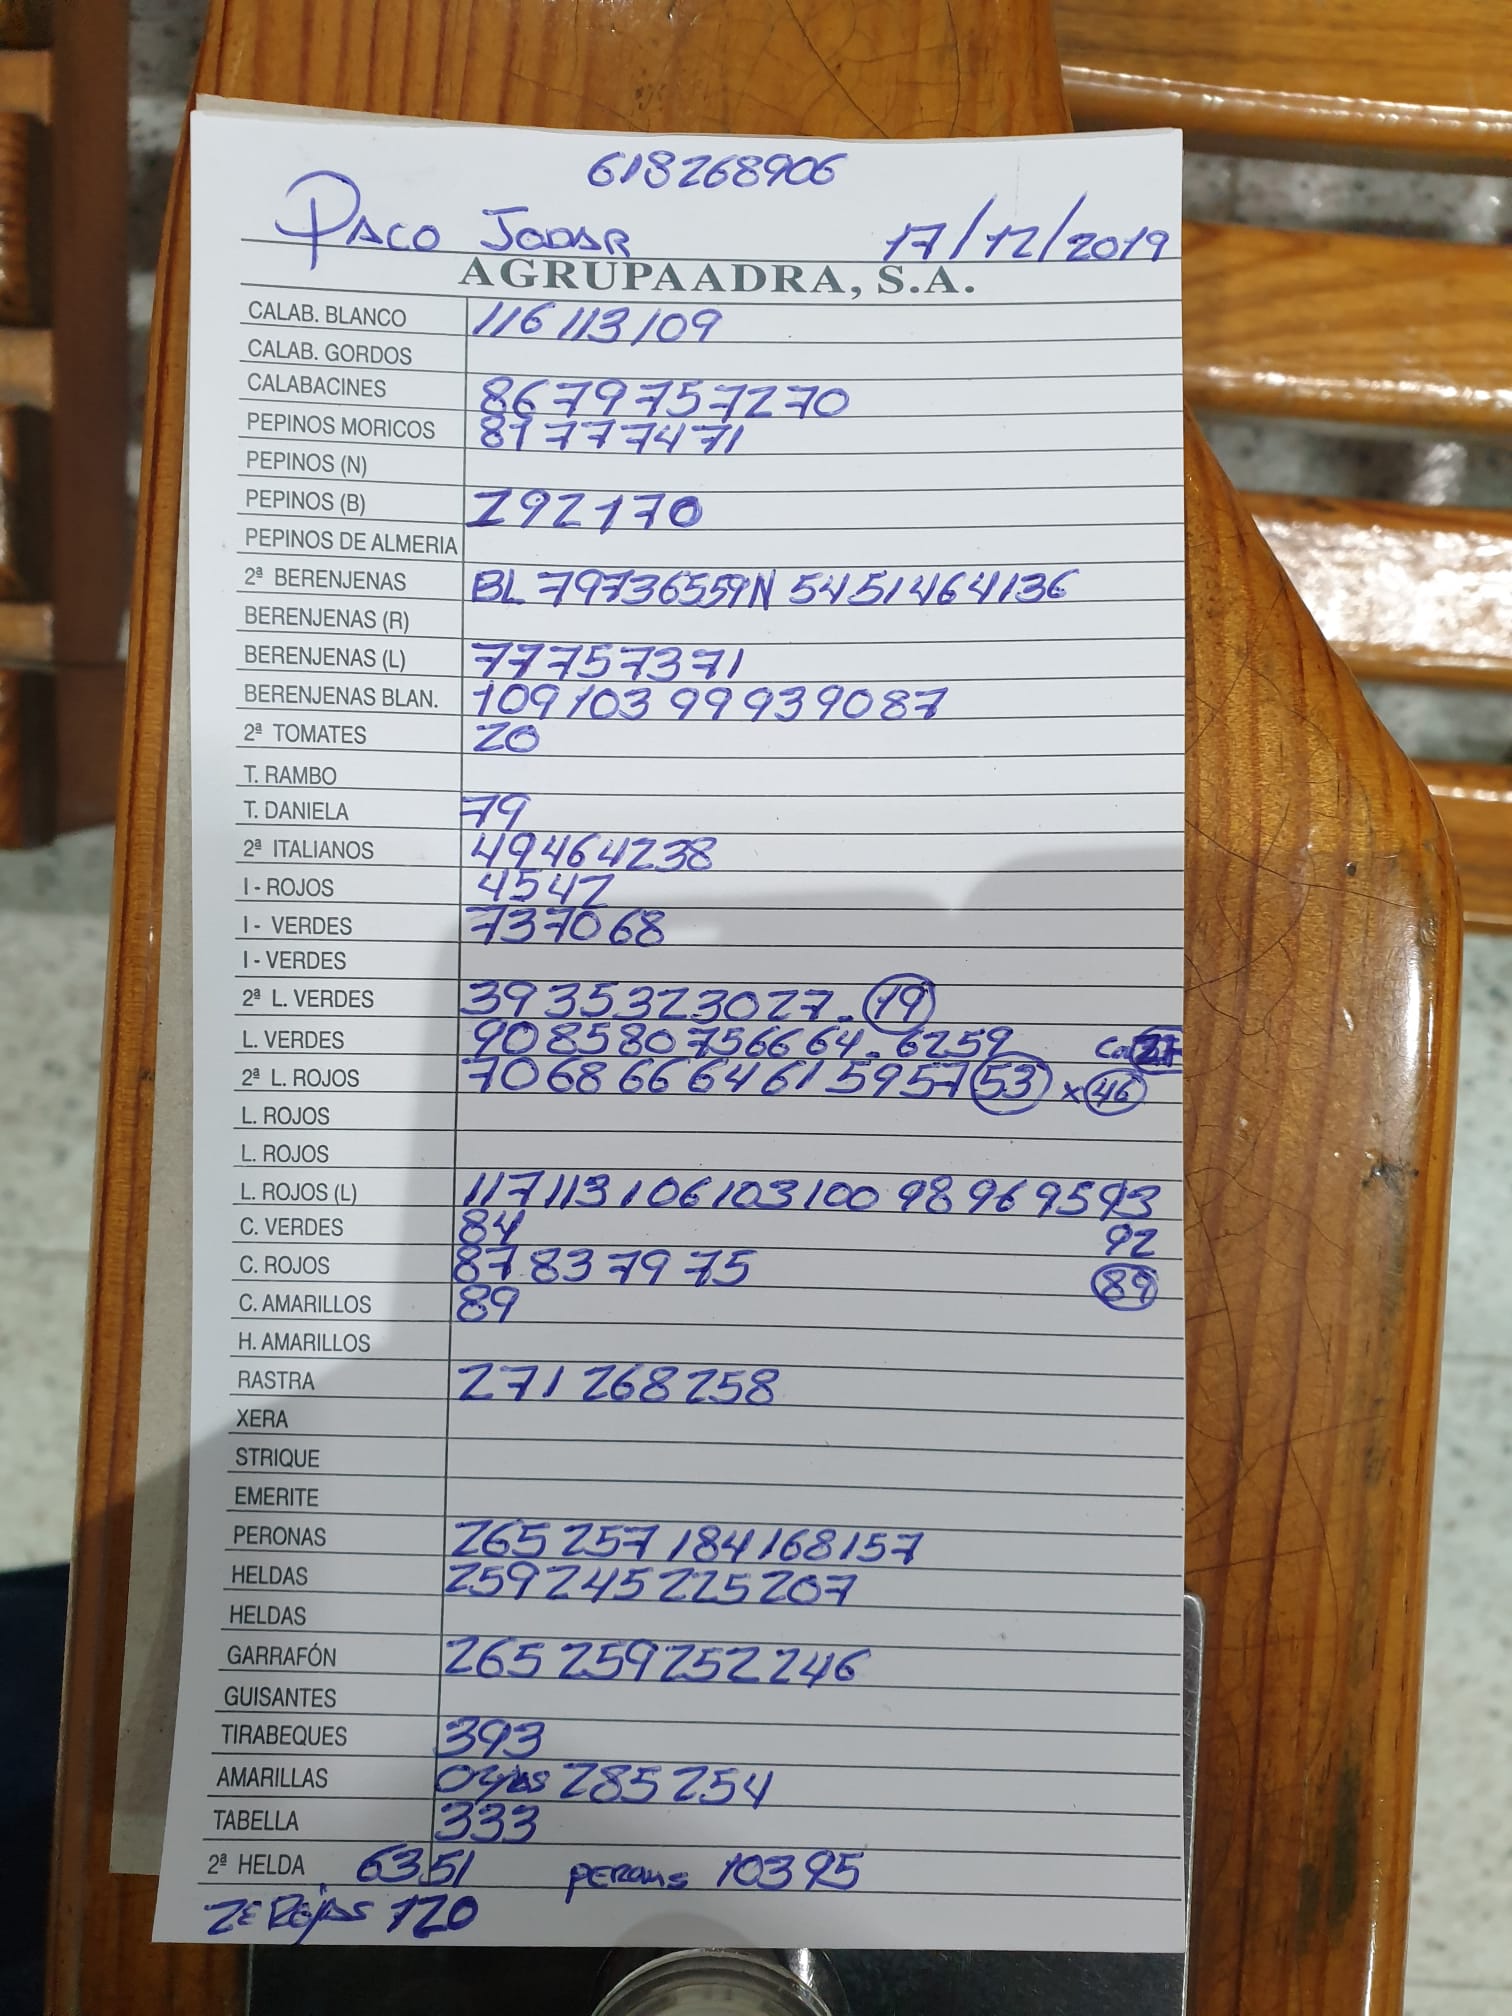 618268906
PACO JODAR 17/12/2019
AGRUPAADRA, S.A.
CALAB. BLANCO 116 113 109
CALAB. GORDOS
CALABACINES 86 79 75 72 70
PEPINOS MORICOS 81 77 74 71
PEPINOS (N)
PEPINOS (B) 292 170
PEPINOS DE ALMERIA
2ª BERENJENAS BL 79 73 65 59 N 54 51 46 41 36
BERENJENAS (R)
BERENJENAS (L) 77 75 73 71
BERENJENAS BLAN. 109 103 99 93 90 87
2ª TOMATES 20
T. RAMBO
T. DANIELA 79
2ª ITALIANOS 49 46 42 38
I - ROJOS 45 42
I - VERDES 73 70 68
I - VERDES
2ª L. VERDES 39 35 32 30 27 - 19
L. VERDES 90 85 80 75 66 64 - 62 59 27
2ª L. ROJOS 70 68 66 64 61 59 57 53 x 46
L. ROJOS
L. ROJOS
L. ROJOS (L) 117 113 106 103 100 98 96 95 93
C. VERDES 84 92
C. ROJOS 87 83 79 75 89
C. AMARILLOS 89
H. AMARILLOS
RASTRA 271 268 258
XERA
STRIQUE
EMERITE
PERONAS 265 257 184 168 157
HELDAS 259 245 225 207
HELDAS
GARRAFÓN 265 259 252 246
GUISANTES
TIRABEQUES 393
AMARILLAS 285 254
TABELLA 333
2ª HELDA 63 51 103 95
120